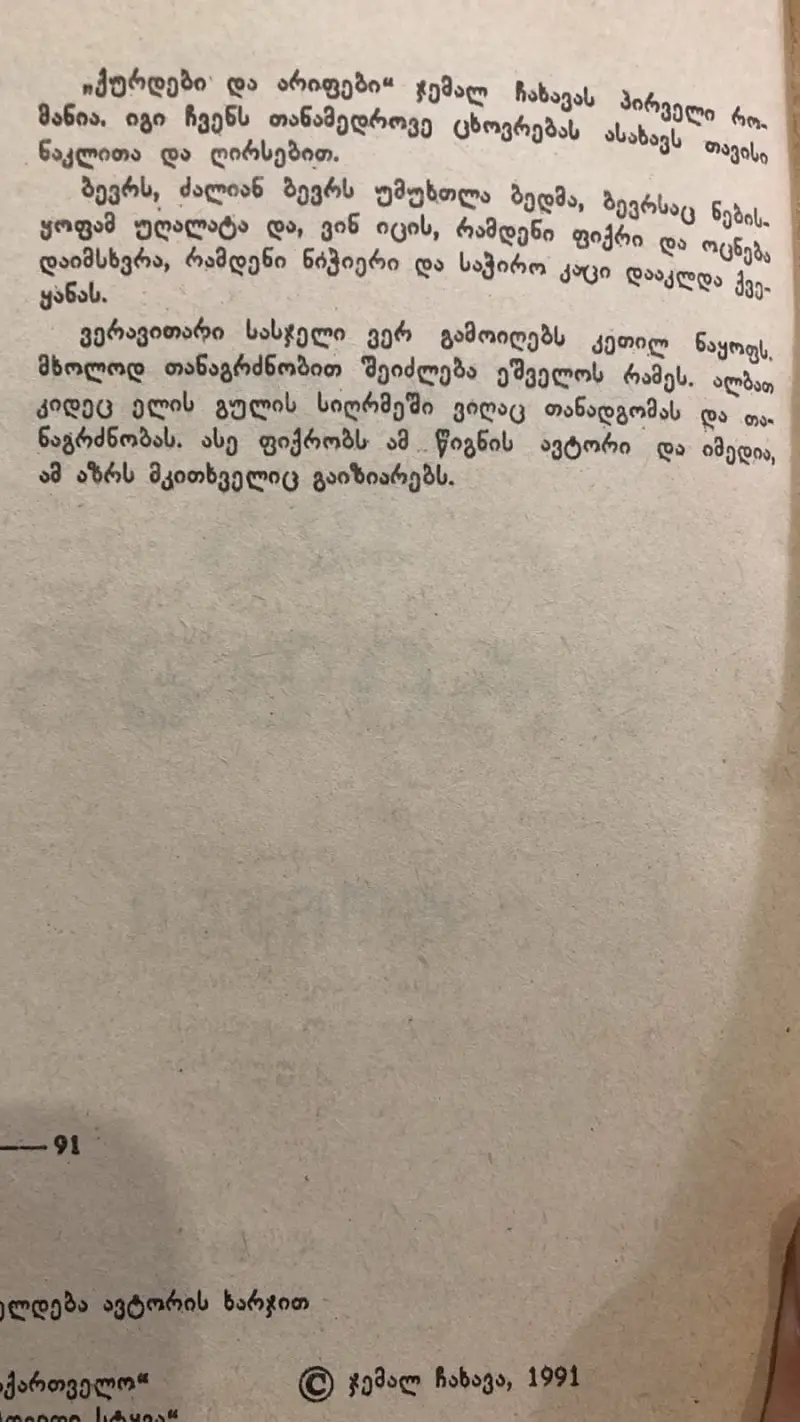 „ქურდები და არიფები“ ჯემალ ჩახავას პირველი რო-
მანია. იგი ჩვენს თანამედროვე ცხოვრებას ასახავს თავისი
ნაკლითა და ღირსებით.
ბევრს, ძალიან ბევრს უმუხთლა ბედმა, ბევრსაც ნების-
ყოფამ უღალატა და, ვინ იცის, რამდენი ფიქრი და ოცნება
დაიმსხვრა, რამდენი ნიჭიერი და საჭირო კაცი დააკლდა ქვე-
ყანას.
ვერავითარი სასჯელი ვერ გამოიღებს კეთილ ნაყოფს.
მხოლოდ თანაგრძნობით შეიძლება ეშველოს რამეს. ალბათ
კიდეც ელის გულის სიღრმეში ვიღაც თანადგომას და თა-
ნაგრძნობას. ასე ფიქრობს ამ წიგნის ავტორი და იმედია,
ამ აზრს მკითხველიც გაიზიარებს.
— 91
ელდება ავტორის ხარჯით
აქართველო“
© ჯემალ ჩახავა, 1991
სტყვა“